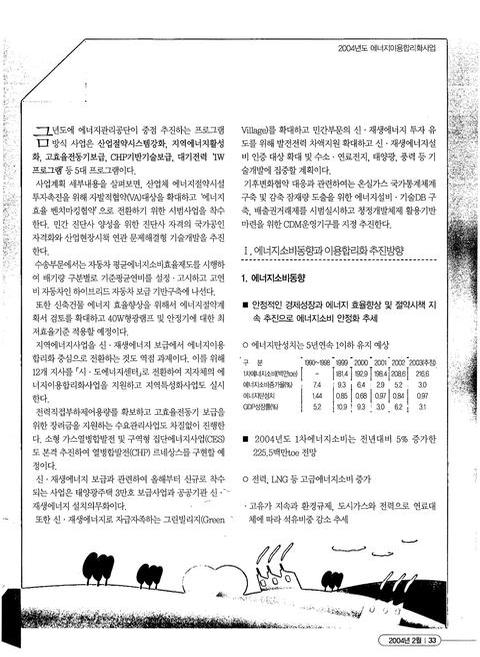 2004년도 에너지이용합리화사업
금년도에 에너지관리공단이 중점 추진하는 프로그램
방식 사업은 산업절약시스템강화, 지역에너지활성
화, 고효율전동기보급, CHP기반기술보급, 대기전력 '1W
프로그램' 등 5대 프로그램이다.
사업계획 세부내용을 살펴보면, 산업체 에너지절약시설
투자촉진을 위해 자발적협약(VA)대상을 확대하고 '에너지
효율 벤치마킹협약'으로 전환하기 위한 시범사업을 착수
한다. 민간 진단사 양성을 위한 진단사 자격의 국가공인
자격화와 산업현장시책 연관 문제해결형 기술개발을 추진
한다.
수송부문에서는 자동차 평균에너지소비효율제도를 시행하
여 배기량 구분별로 기준평균연비를 설정·고시하고 고연
비 자동차인 하이브리드 자동차 보급 기반구축에 나선다.
또한 신축건물 에너지 효율향상을 위해서 에너지절약계
획서 검토를 확대하고 40W형광램프 및 안정기에 대한 최
저효율기준 적용할 예정이다.
지역에너지사업을 신·재생에너지 보급에서 에너지이용
합리화 중심으로 전환하는 것도 역점 과제이다. 이를 위해
12개 지사를 「시·도에너지센터」로 전환하여 지자체의 에
너지이용합리화사업을 지원하고 지역특성화사업도 실시
한다.
전력직접부하제어용량을 확보하고 고효율전동기 보급을
위한 장려금을 지원하는 수요관리사업도 차질없이 진행한
다. 소형 가스열병합발전 및 구역형 집단에너지사업(CES)
도 본격 추진하여 열병합발전(CHP) 르네상스를 구현할 예
정이다.
신·재생에너지 보급과 관련하여 올해부터 신규로 착수
되는 사업은 태양광주택 3만호 보급사업과 공공기관 신·
재생에너지 설치의무화이다.
또한 신·재생에너지로 자급자족하는 그린빌리지(Green
Village)를 확대하고 민간부문의 신·재생에너지 투자 유
도를 위해 발전전력 차액지원 확대하고 신·재생에너지설
비 인증 대상 확대 및 수소·연료전지, 태양광, 풍력 등 기
술개발에 집중할 계획이다.
기후변화협약 대응과 관련하여는 온실가스 국가통계체계
구축 및 감축 잠재량 도출을 위한 에너지설비·기술DB 구
축, 배출권거래제를 시범실시하고 청정개발체제 활용기반
마련을 위한 CDM운영기구를 지정 추진한다.
Ⅰ. 에너지소비동향과 이용합리화 추진방향
1. 에너지소비동향
■ 안정적인 경제성장과 에너지 효율향상 및 절약시책 지
속 추진으로 에너지소비 안정화 추세
○ 에너지탄성치는 5년연속 1이하 유지 예상
구 분 1990~1998 1999 2000 2001 2002 2003(추정)
1차에너지소비(백만toe) - 181.4 192.9 198.4 208.6 215.6
에너지소비증가율(%) 7.4 9.3 6.4 2.9 5.2 3.0
에너지탄성치 1.44 0.85 0.68 0.97 0.84 0.97
GDP성장률(%) 5.2 10.9 9.3 3.0 6.2 3.1
■ 2004년도 1차에너지소비는 전년대비 5% 증가한
225.5백만toe 전망
○ 전력, LNG 등 고급에너지소비 증가
· 고유가 지속과 환경규제, 도시가스와 전력으로 연료대
체에 따라 석유비중 감소 추세
2004년 2월 | 33